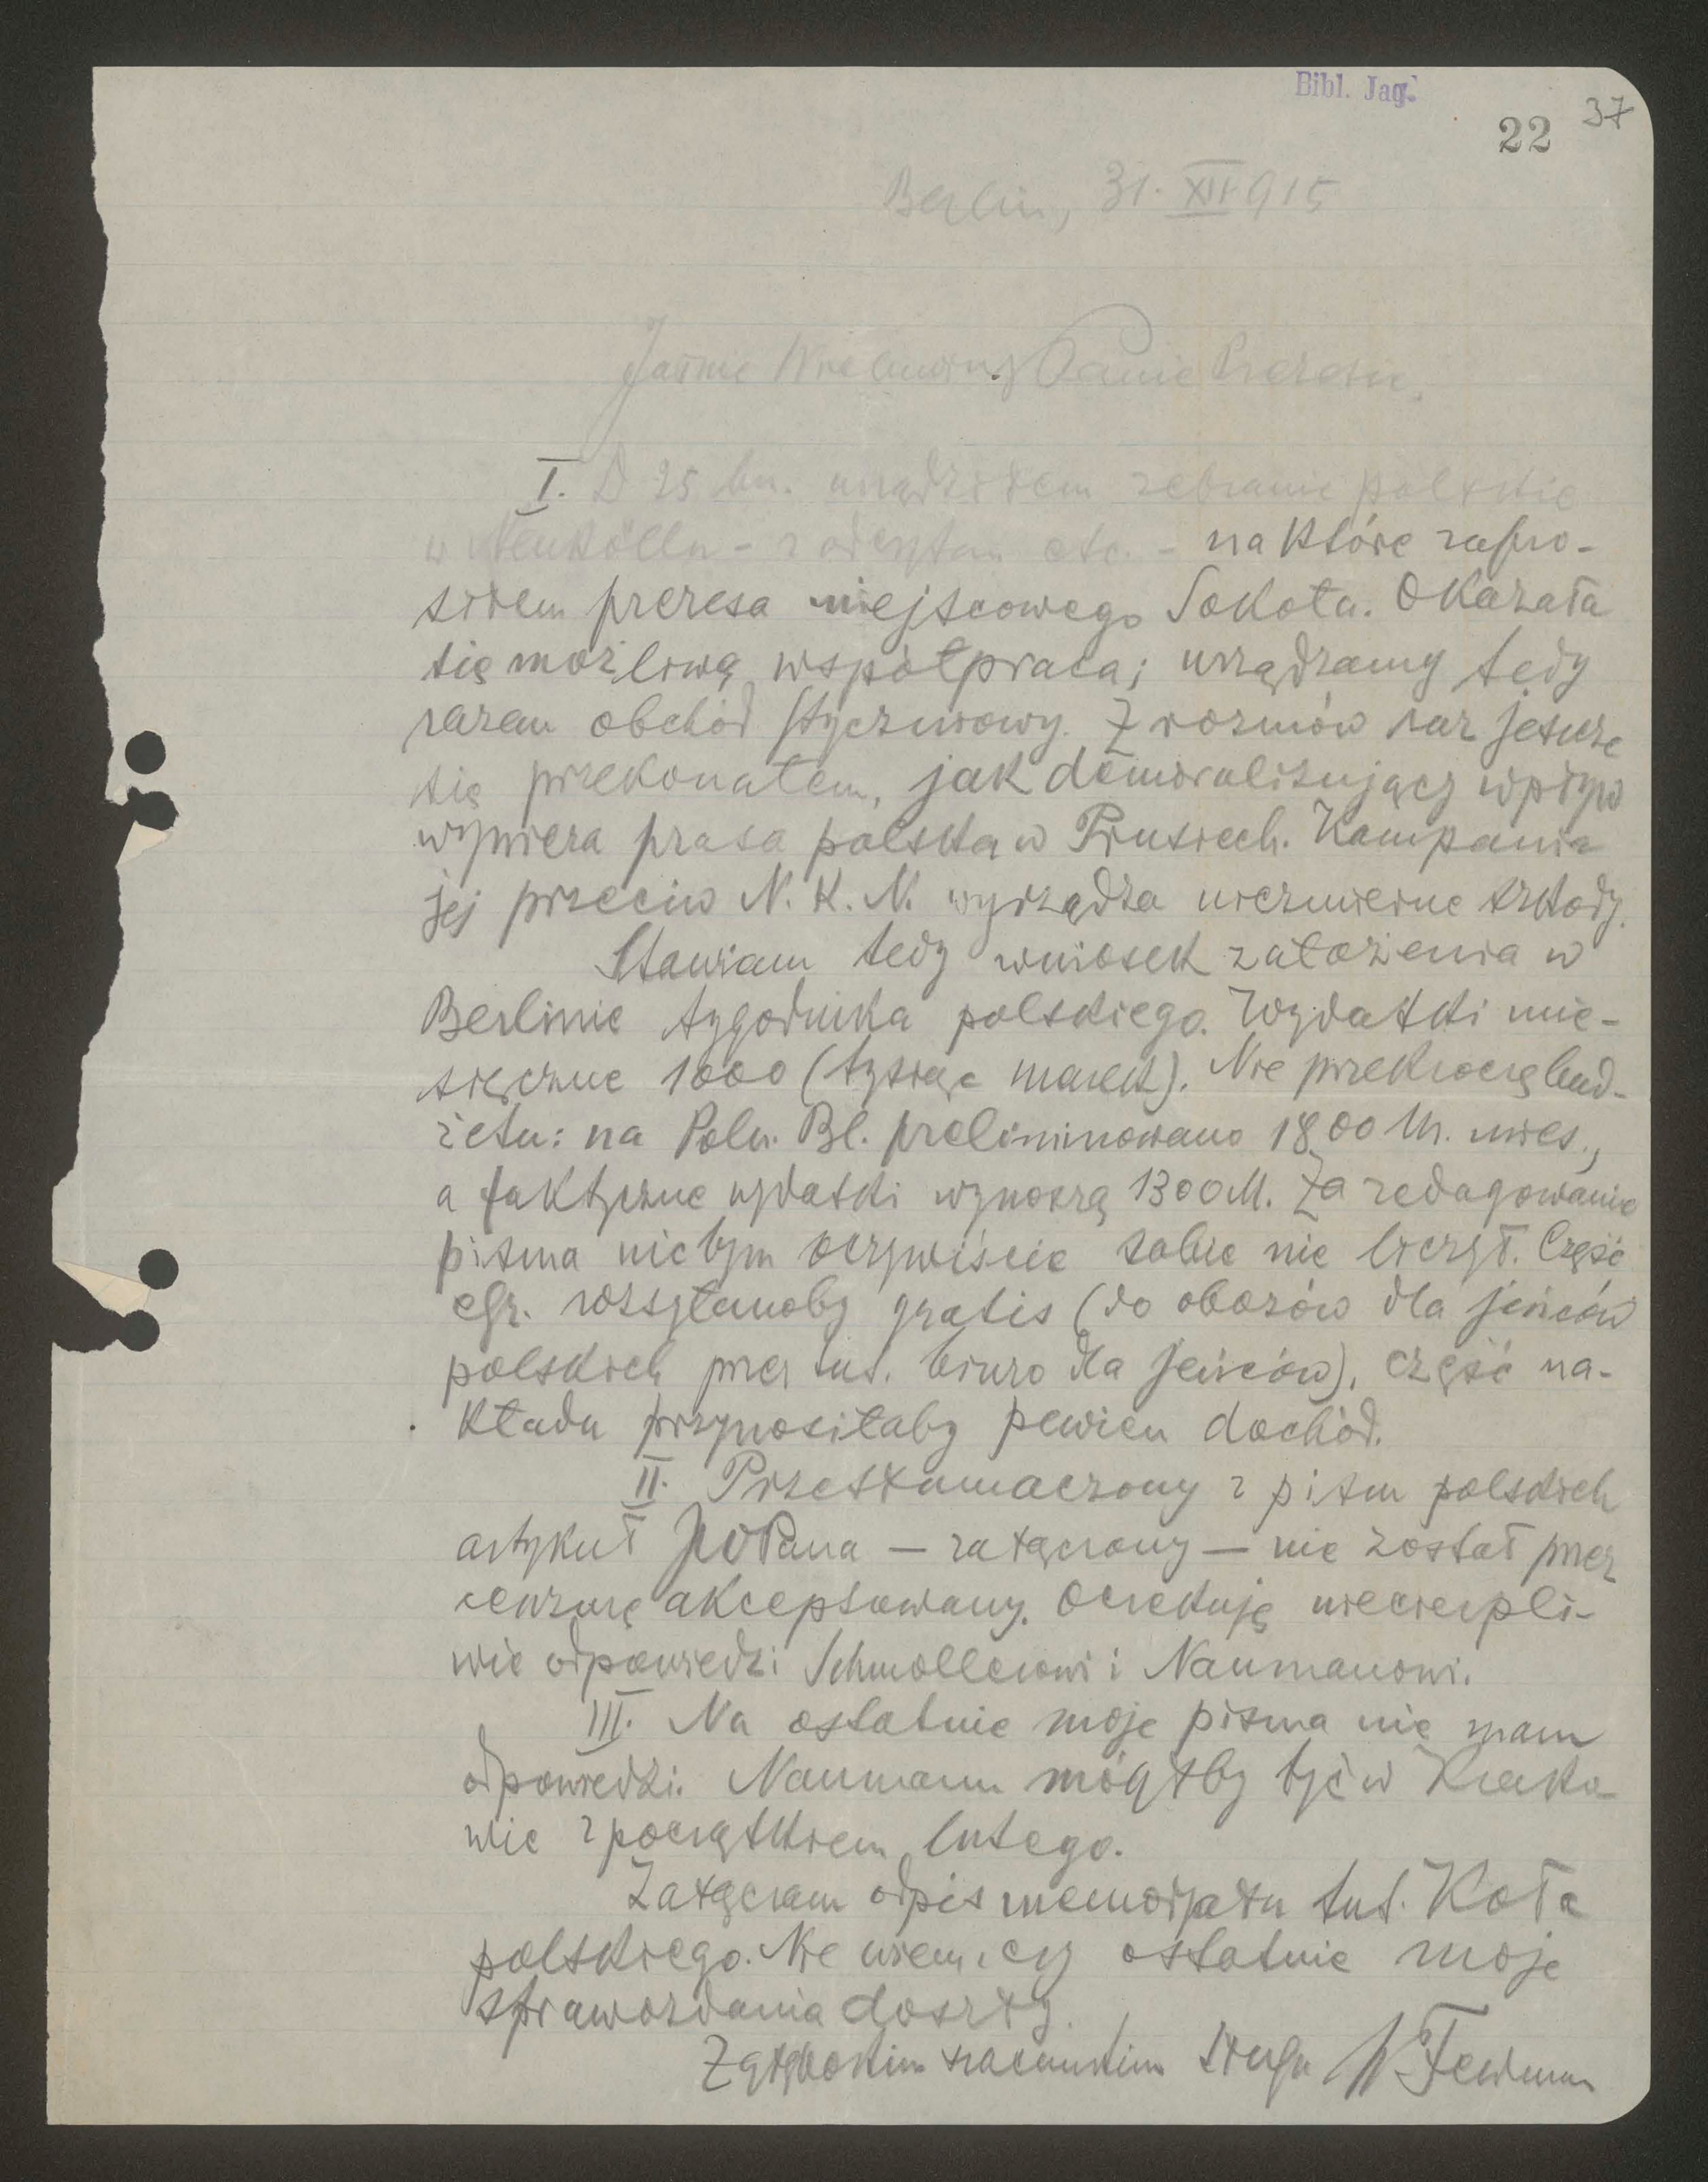 Bibl. Jag.
22 37
Berlin, 31. XII 915
Jaśnie Wielmożny Panie Prezesie,
I. D 25 bm. urządziłem zebranie polskie
w Neukölln - z odczytem etc. - na które zapro-
siłem prezesa miejscowego Sokoła. Okazała
się możliwą współpraca; urządzamy tedy
razem obchód styczniowy. Z rozmów raz jeszcze
się przekonałem, jak demoralizujący wpływ
wywiera prasa polska w Prusiech. Kampania
jej przeciw N. K. N. wyrządza niezmierne szkody.
Stawiam tedy wniosek założenia w
Berlinie tygodnika polskiego. Wydatki mie-
sięczne 1000 (tysiąc marek). Nie przekroczę bud-
żetu: na Poln. Bl. preliminowano 1800 M. mies.,
a faktyczne wydatki wynoszą 1300 M. Za redagowanie
pisma nicbym oczywiście sobie nie liczył. Część
egz. rozsyłanoby gratis (do obozów dla jeńców
polskich przez tut. biuro dla jeńców), część na-
kładu przynosiłaby pewien dochód.
II. Przetłumaczony z pism polskich
artykuł JWPana — załączony — nie został przez
cenzurę akceptowany. Oczekuję niecierpli-
wie odpowiedzi Schmollerowi i Naumanowi.
III. Na ostatnie moje pisma nie mam
odpowiedzi. Naumann mógłby być w Krako-
wie z początkiem lutego.
Załączam odpis memorjału tut. Koła
polskiego. Nie wiem, czy ostatnie moje
sprawozdania doszły.
Z głębokim szacunkiem sługa W. Feldman